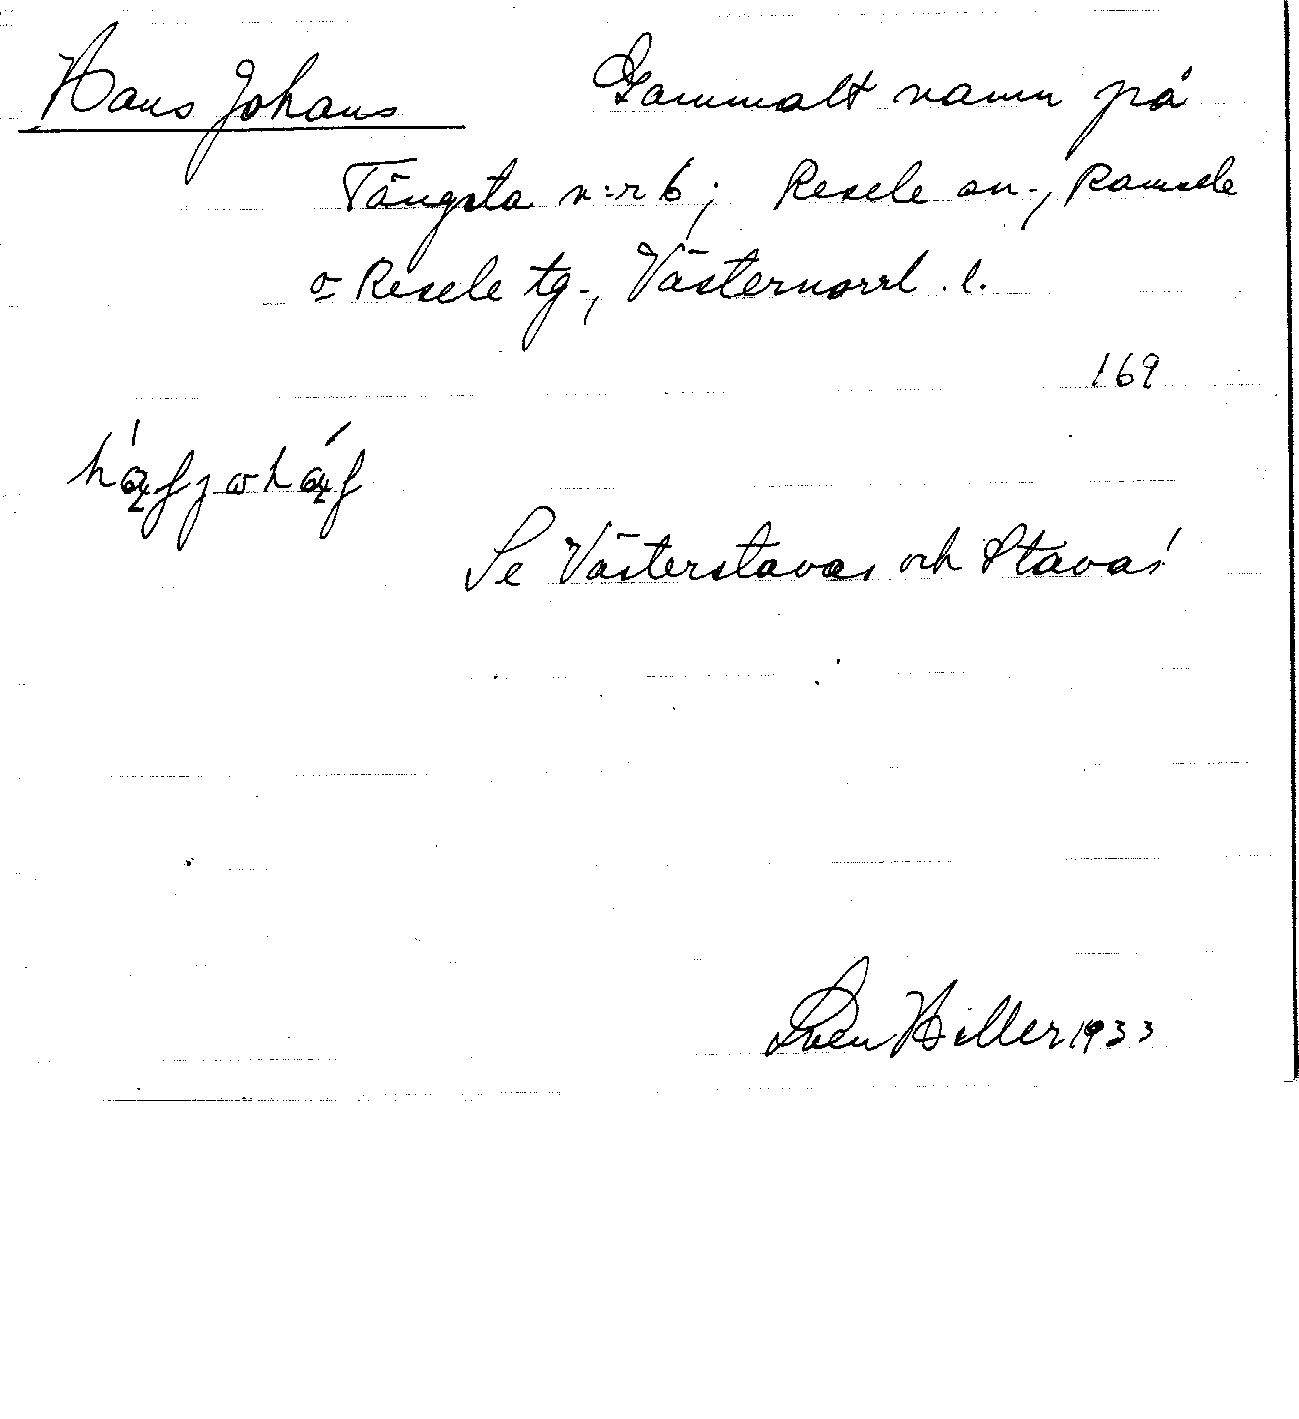 Hans Johans Gammalt namn på
Tängsta n:r 6; Resele sn., Ramsele
o Resele tg., Västernorrl. l.
169
Se Västerstavas och Stavas!
Sven Hiller 1933